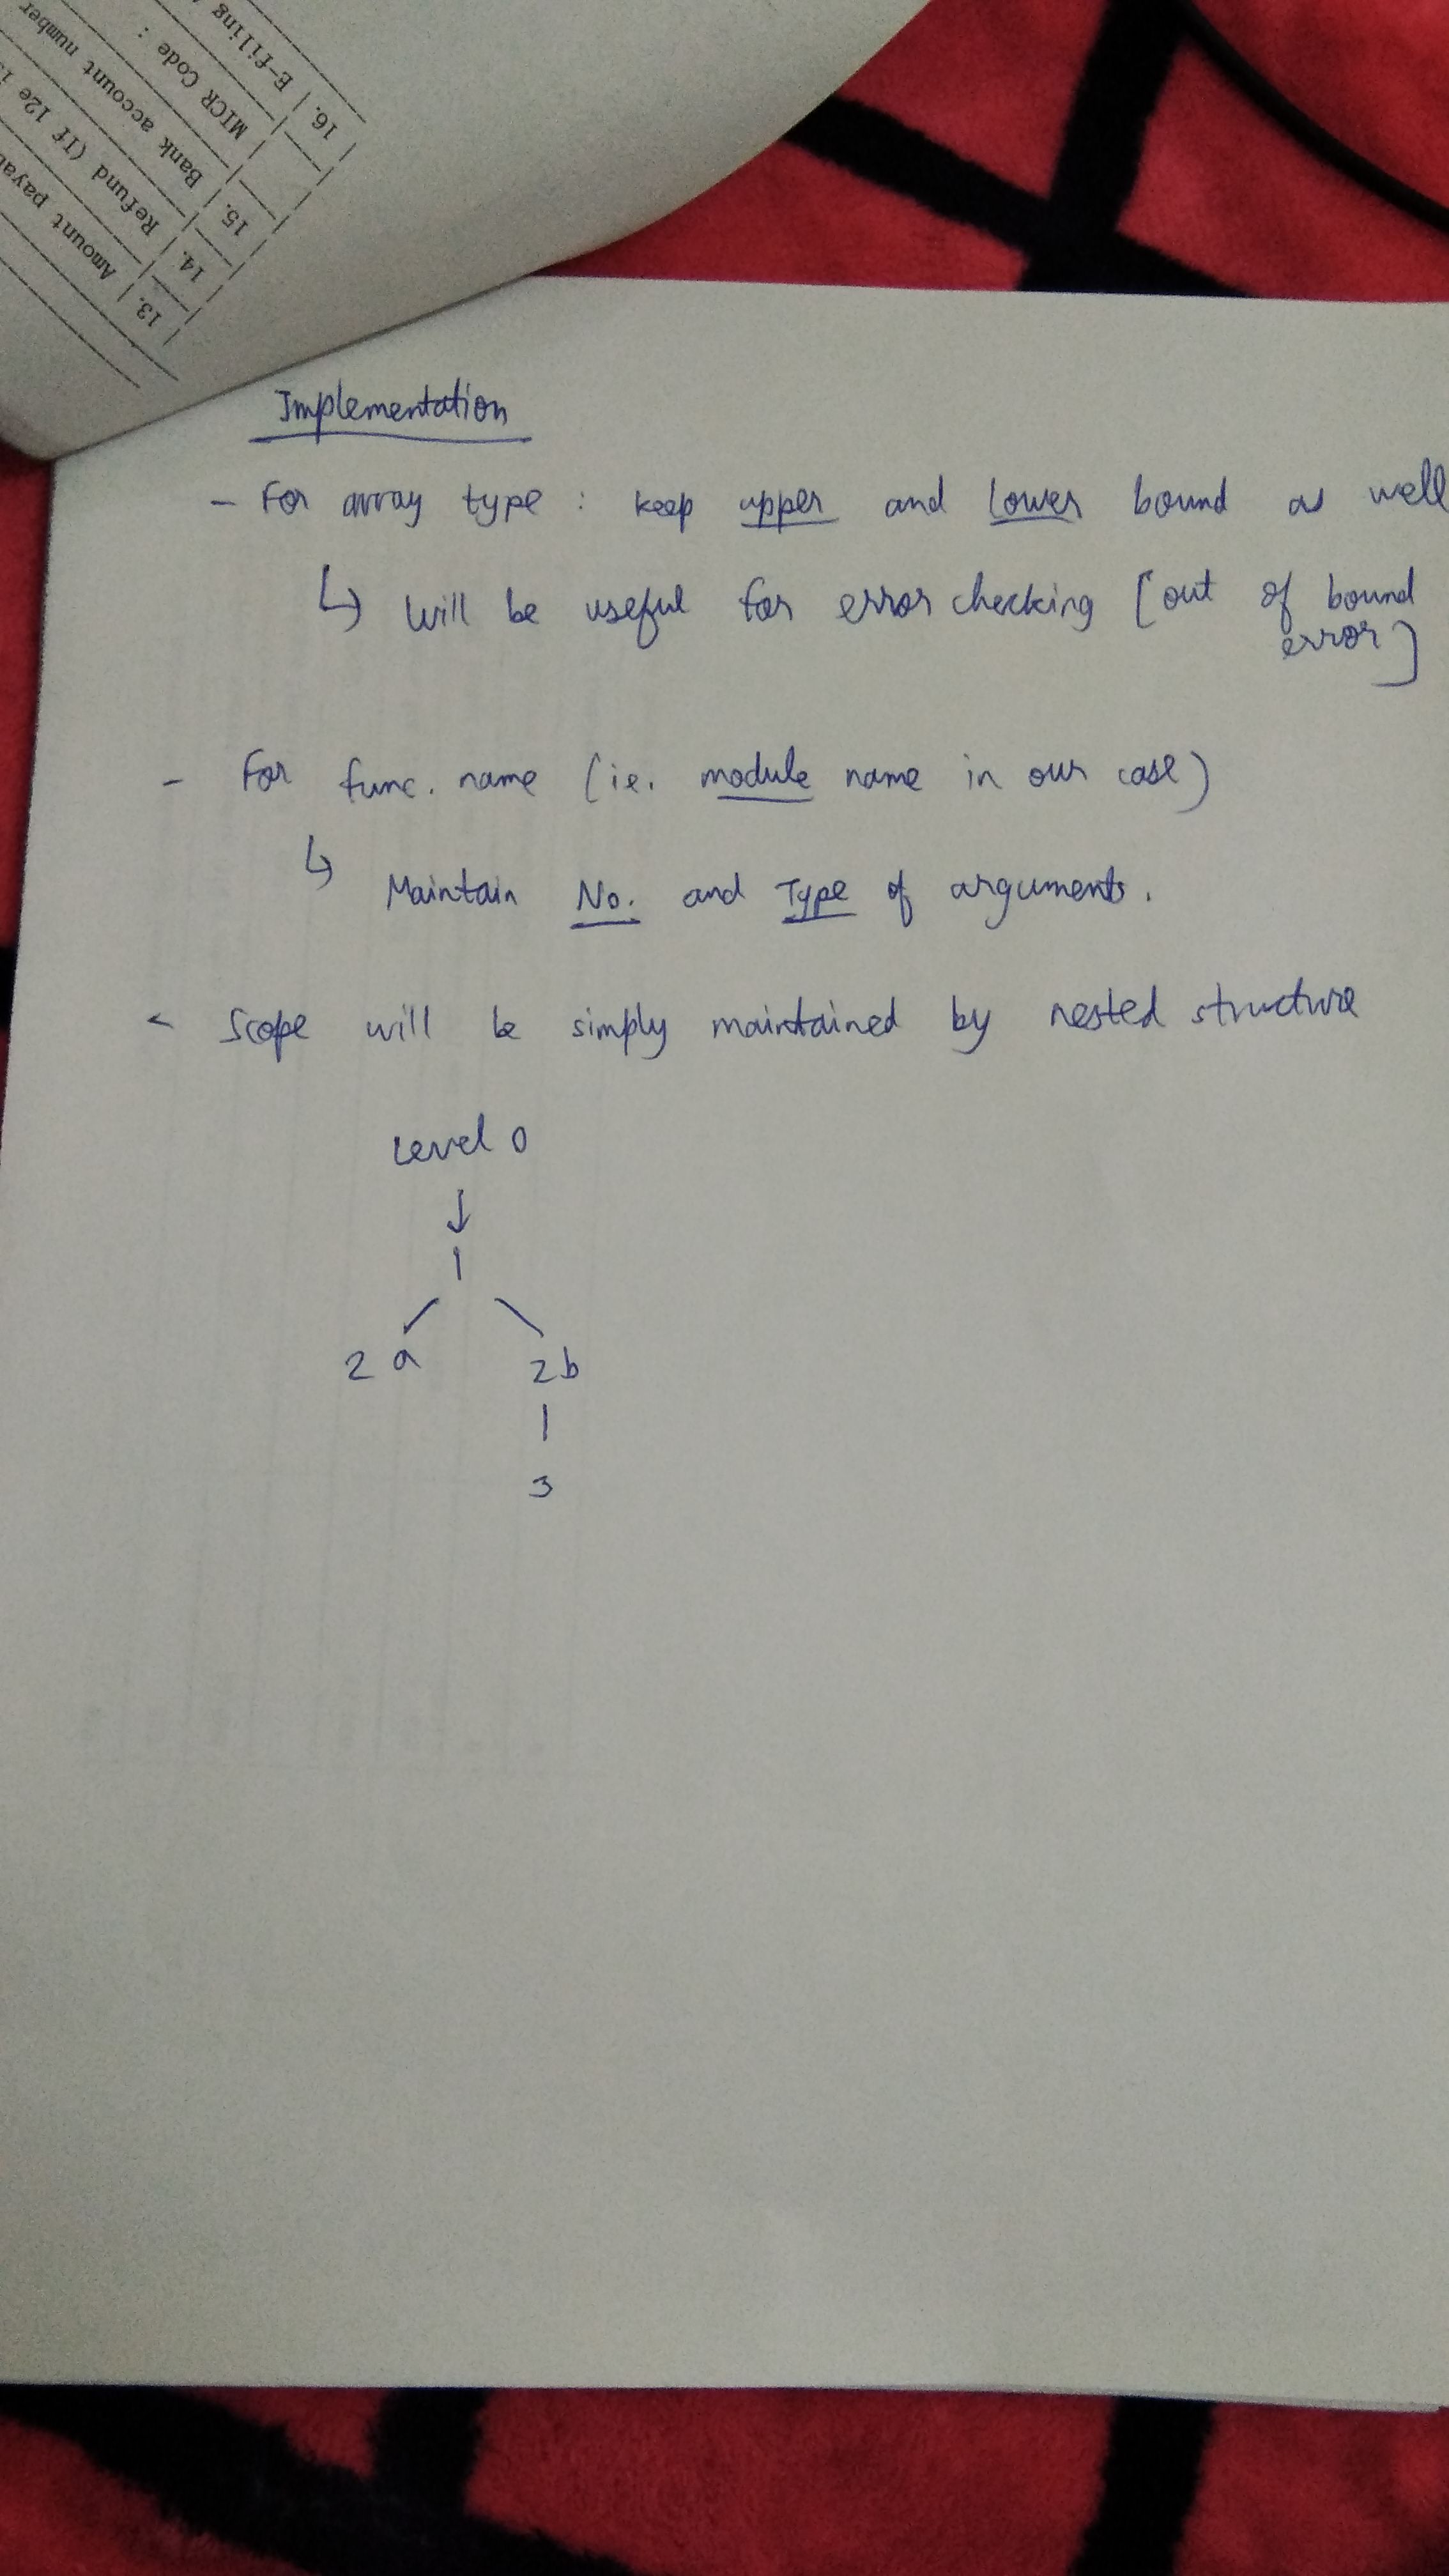 16. | E-filling
MICR Code :
15. | Bank account number
14. | Refund (If 12e
13. | Amount
Implementation
- For array type : keep upper and lower bound as well
↳ will be useful for error checking [out of bound
error]
- For func. name (ie. module name in our case)
↳ Maintain No. and Type of arguments.
- Scope will be simply maintained by nested structure
Level 0
↓
1
2 a 2b
3